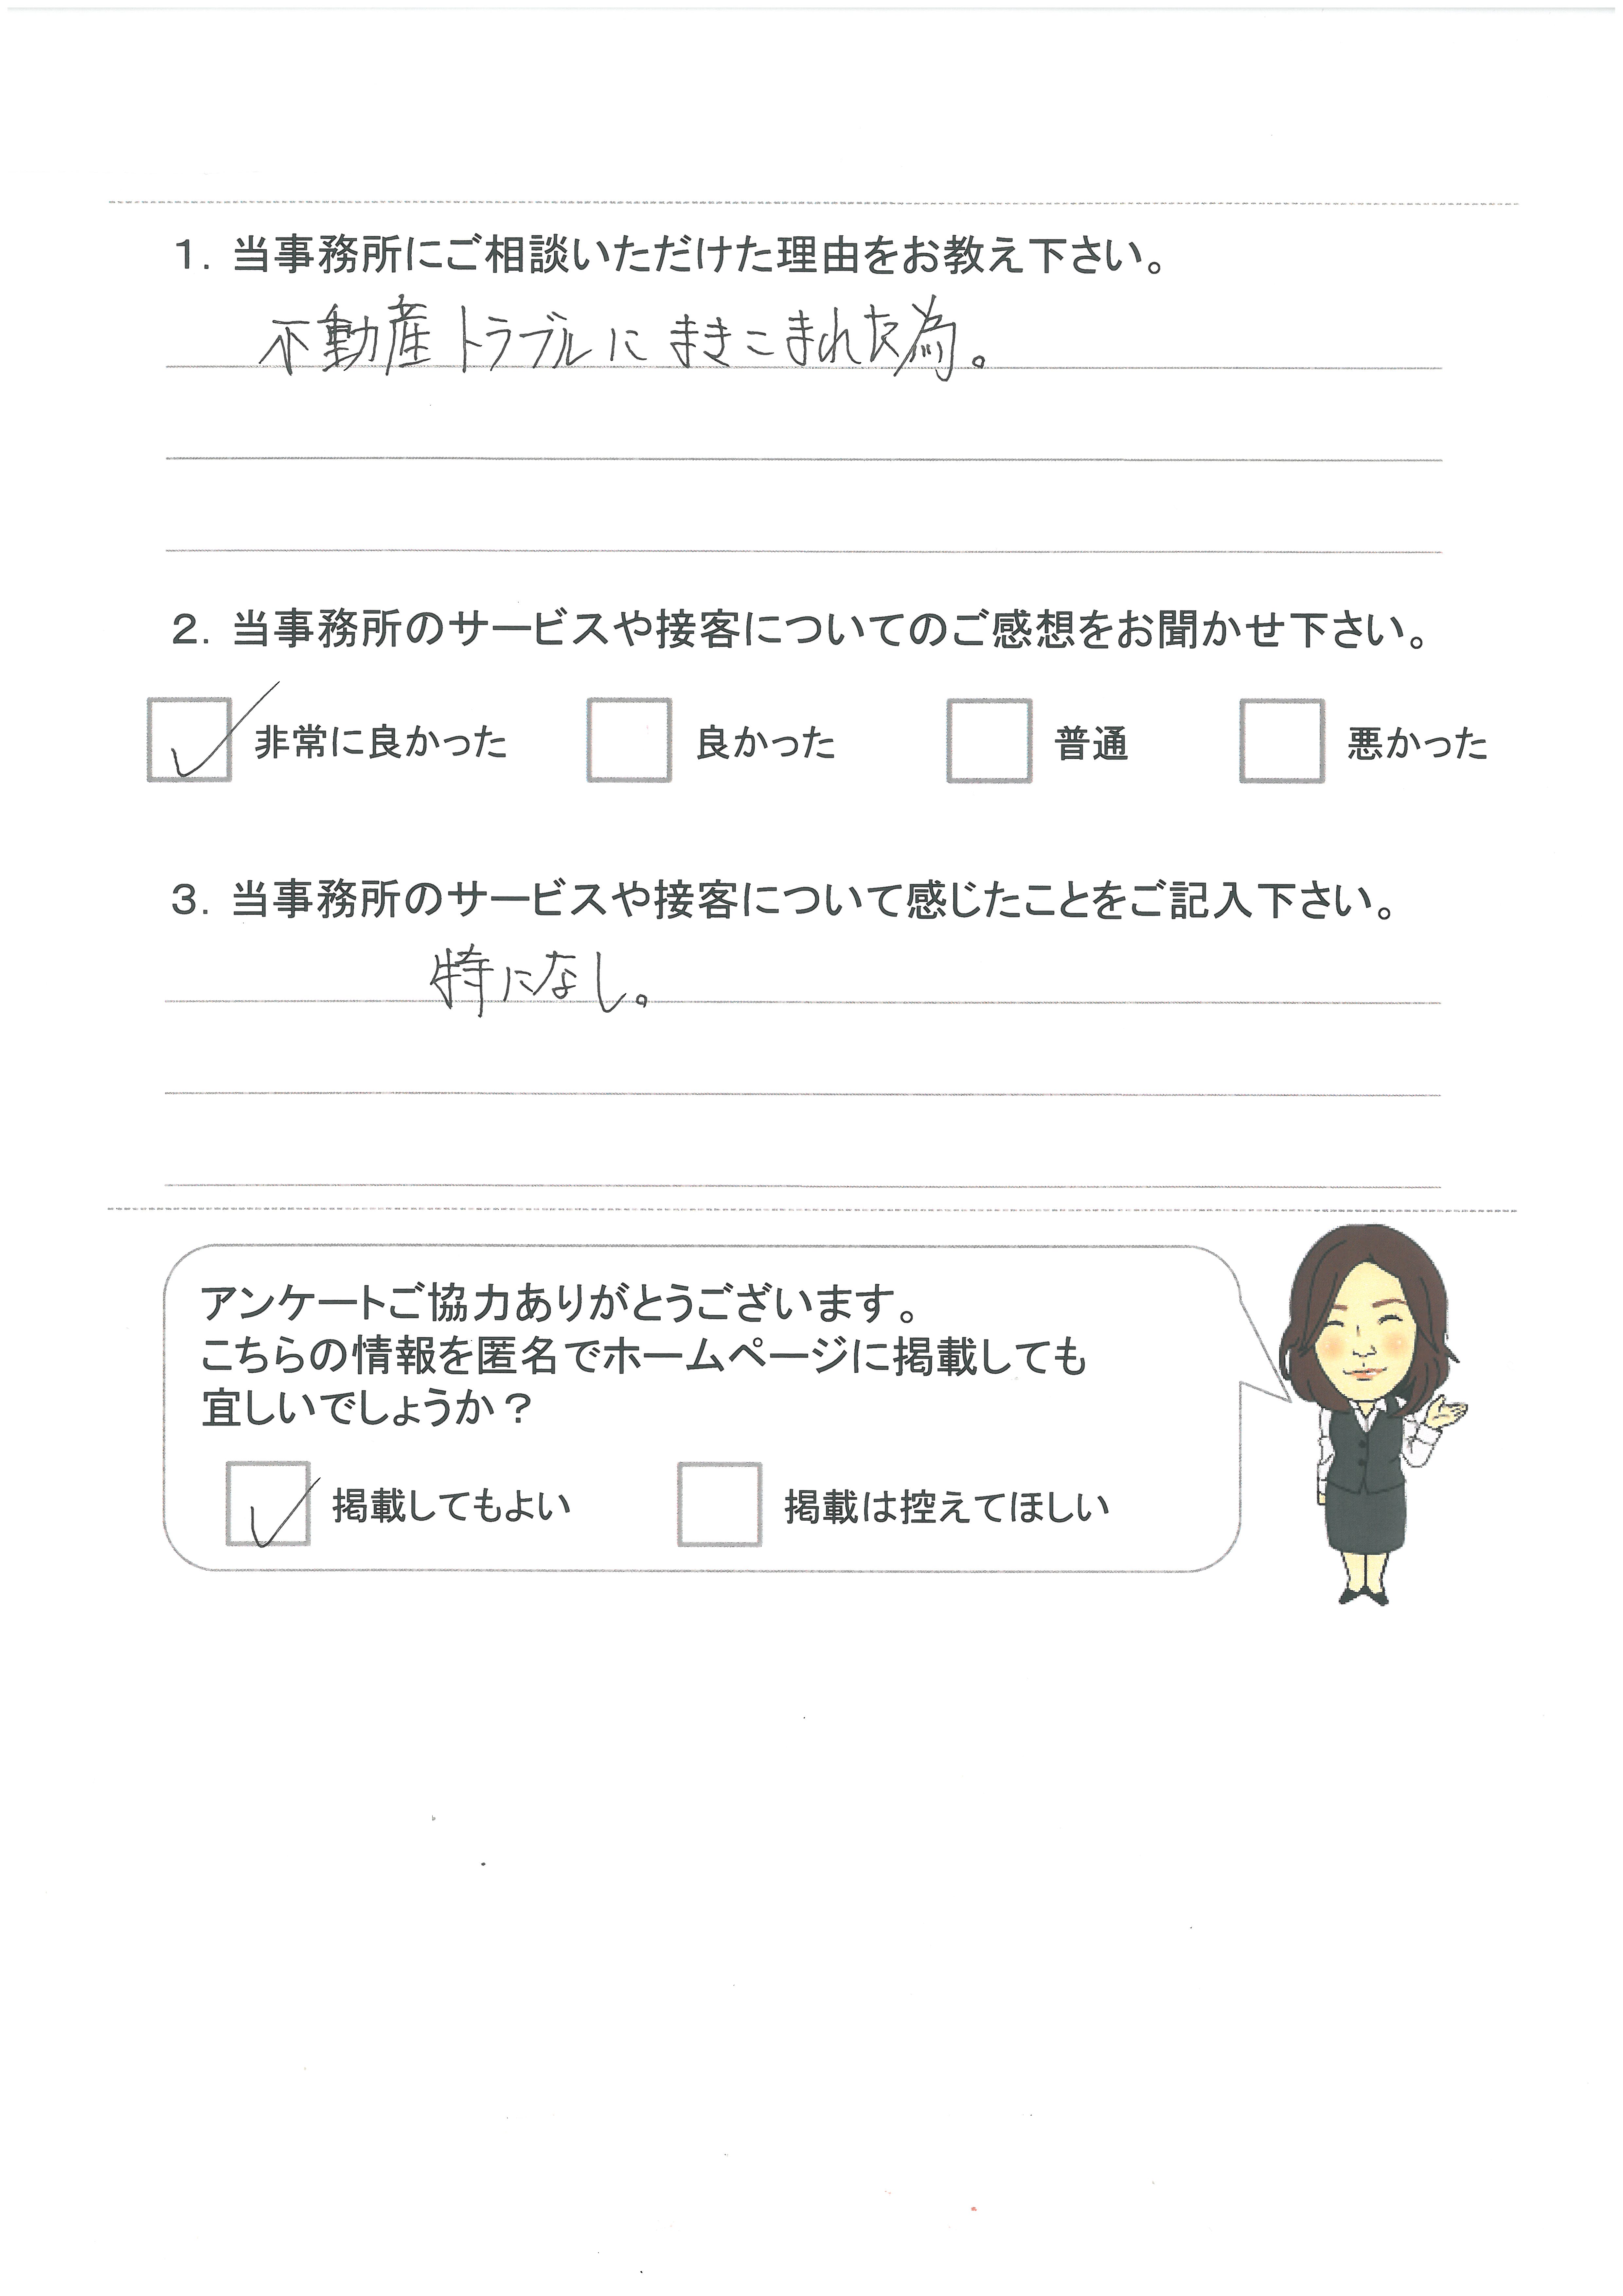 1. 当事務所にご相談いただけた理由をお教え下さい。
不動産トラブルにまきこまれた為。
2. 当事務所のサービスや接客についてのご感想をお聞かせ下さい。
非常に良かった 良かった 普通 悪かった
3. 当事務所のサービスや接客について感じたことをご記入下さい。
特になし。
アンケートご協力ありがとうございます。
こちらの情報を匿名でホームページに掲載しても
宜しいでしょうか？
掲載してもよい 掲載は控えてほしい